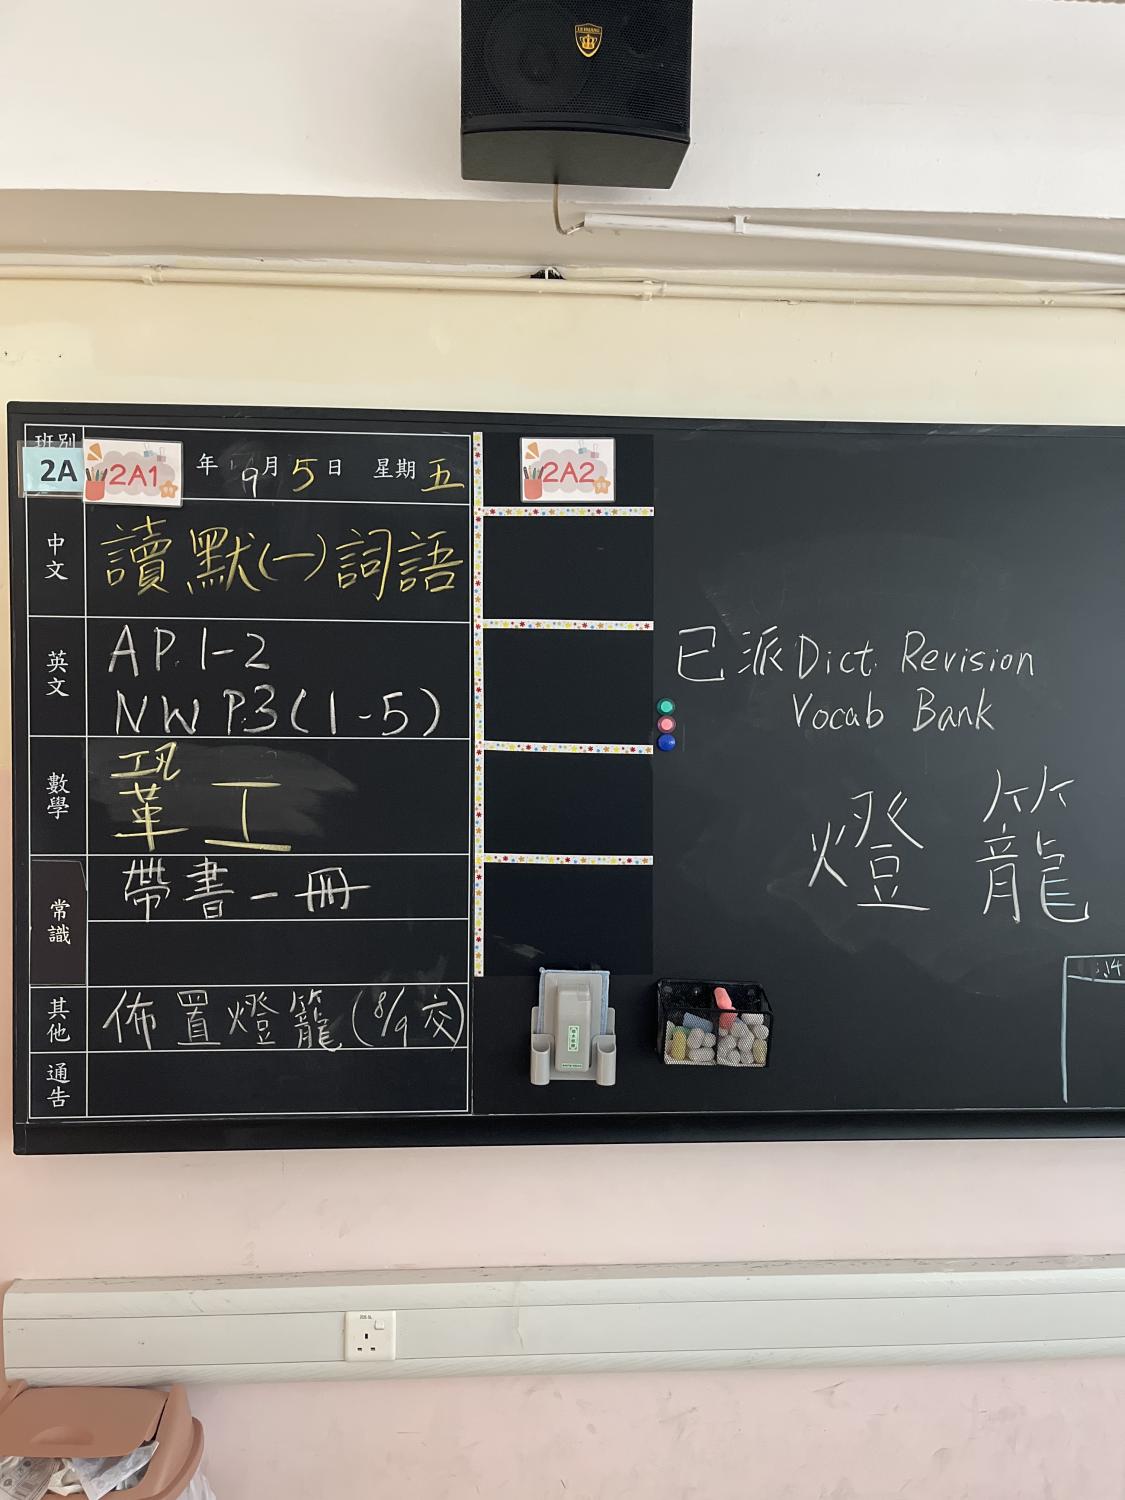 班別
2A
2A1
年 9月5日 星期五
中文
讀默(一)詞語
英文
AP.1-2
NW P.3(1-5)
數學
鞏工
常識
帶書一冊
其他
佈置燈籠(8/9交)
通告
2A2
已派Dict. Revision
Vocab Bank
燈籠